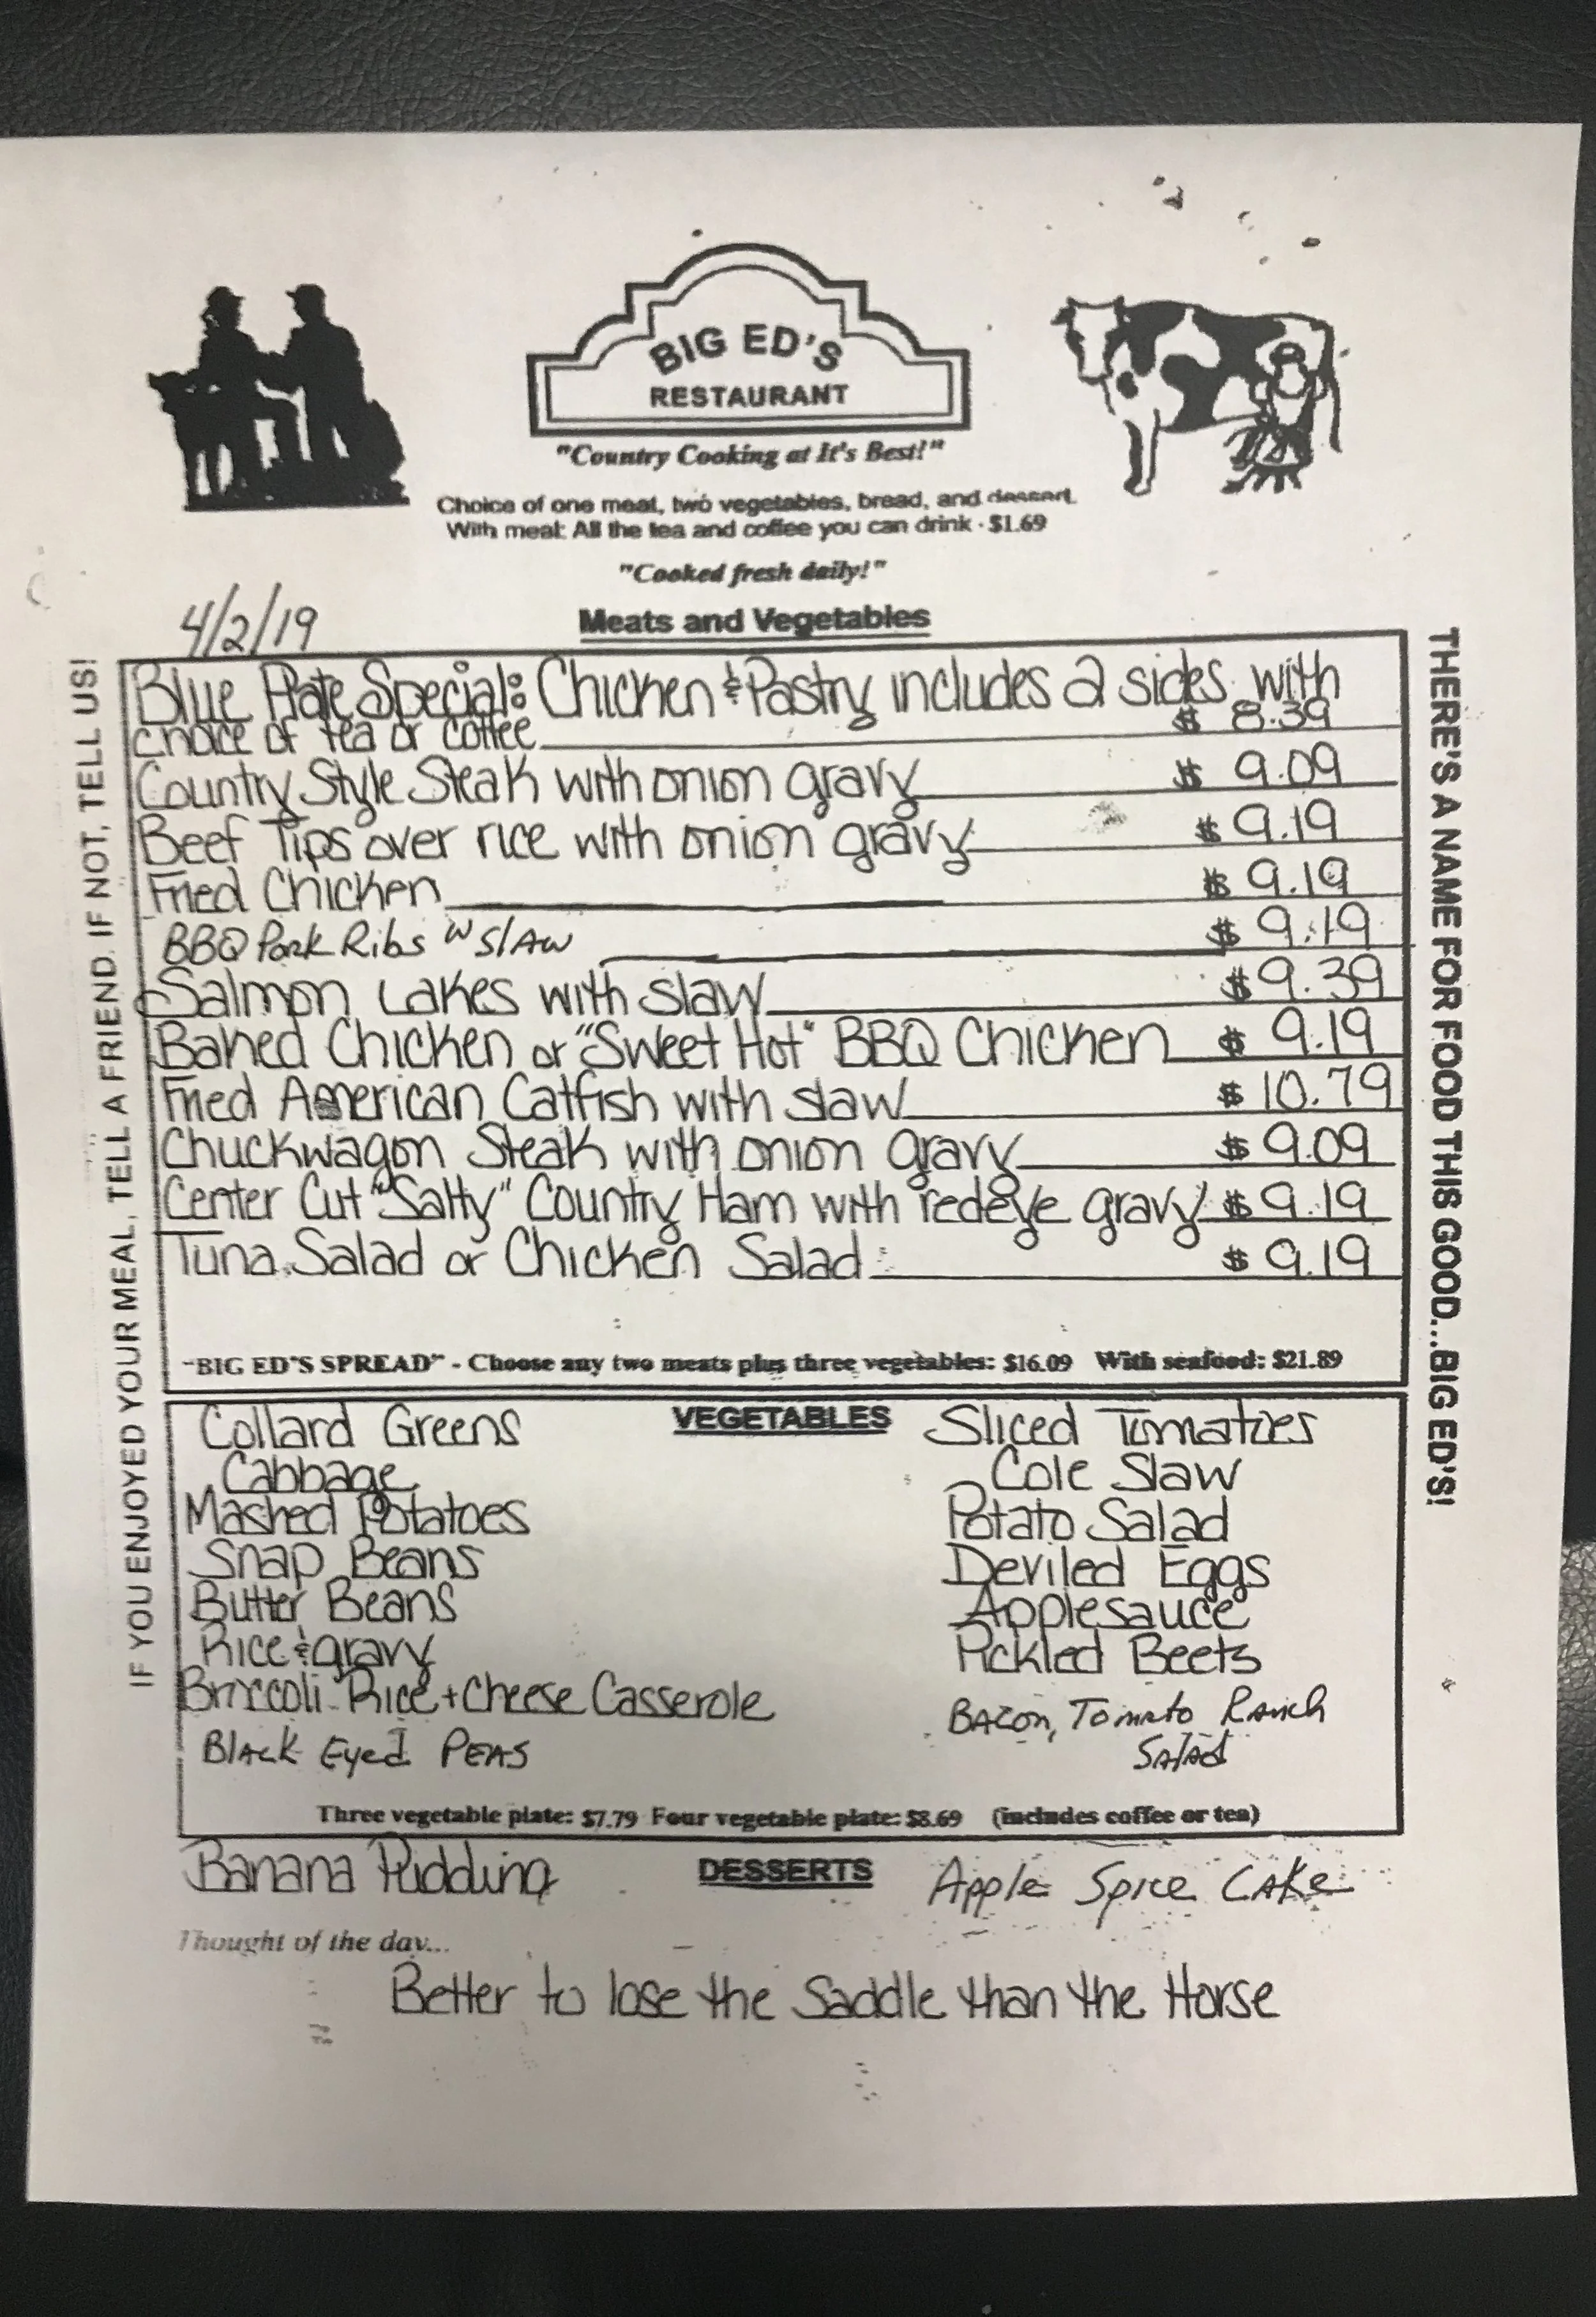 BIG ED'S
RESTAURANT
"Country Cooking at It's Best!"
Choice of one meat, two vegetables, bread, and dessert.
With meal: All the tea and coffee you can drink - $1.69
"Cooked fresh daily!"
4/2/19
Meats and Vegetables
Blue Plate Special: Chicken & Pastry includes 2 sides with
choice of tea or coffee $ 8.39
Country Style Steak with onion gravy $ 9.09
Beef Tips over rice with onion gravy $ 9.19
Fried Chicken $ 9.19
BBQ Pork Ribs w slaw $ 9.19
Salmon Cakes with slaw $ 9.39
Baked Chicken or "Sweet Hot" BBQ Chicken $ 9.19
Fried American Catfish with slaw $ 10.79
Chuckwagon Steak with onion gravy $ 9.09
Center Cut "Salty" Country Ham with redeye gravy $ 9.19
Tuna Salad or Chicken Salad $ 9.19
"BIG ED'S SPREAD" - Choose any two meats plus three vegetables: $16.09 With seafood: $21.89
VEGETABLES
Collard Greens
Cabbage
Mashed Potatoes
Snap Beans
Butter Beans
Rice & gravy
Broccoli Rice + Cheese Casserole
Black Eyed Peas
Sliced Tomatoes
Cole Slaw
Potato Salad
Deviled Eggs
Applesauce
Pickled Beets
Bacon, Tomato Ranch
Salad
Three vegetable plate: $7.79 Four vegetable plate: $8.69 (includes coffee or tea)
DESSERTS
Banana Pudding
Apple Spice Cake
Thought of the day...
Better to lose the Saddle than the Horse
IF YOU ENJOYED YOUR MEAL, TELL A FRIEND. IF NOT, TELL US!
THERE'S A NAME FOR FOOD THIS GOOD...BIG ED'S!